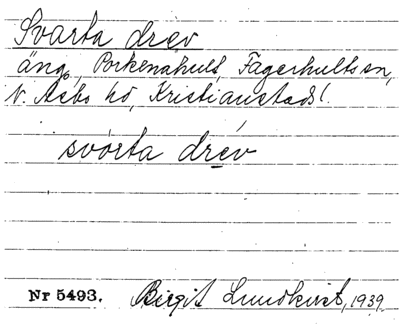 Svarta drev
äng, Porkenahult, Fagerhults sn,
N. Åsbo hd, Kristianstads l.
svórta drév
Nr 5493. Birgit Lundkvist, 1939